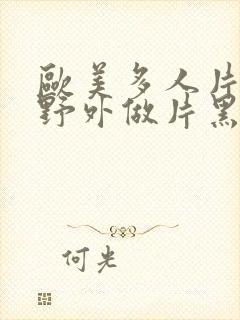 歐美多人片
野外做片黑
何光